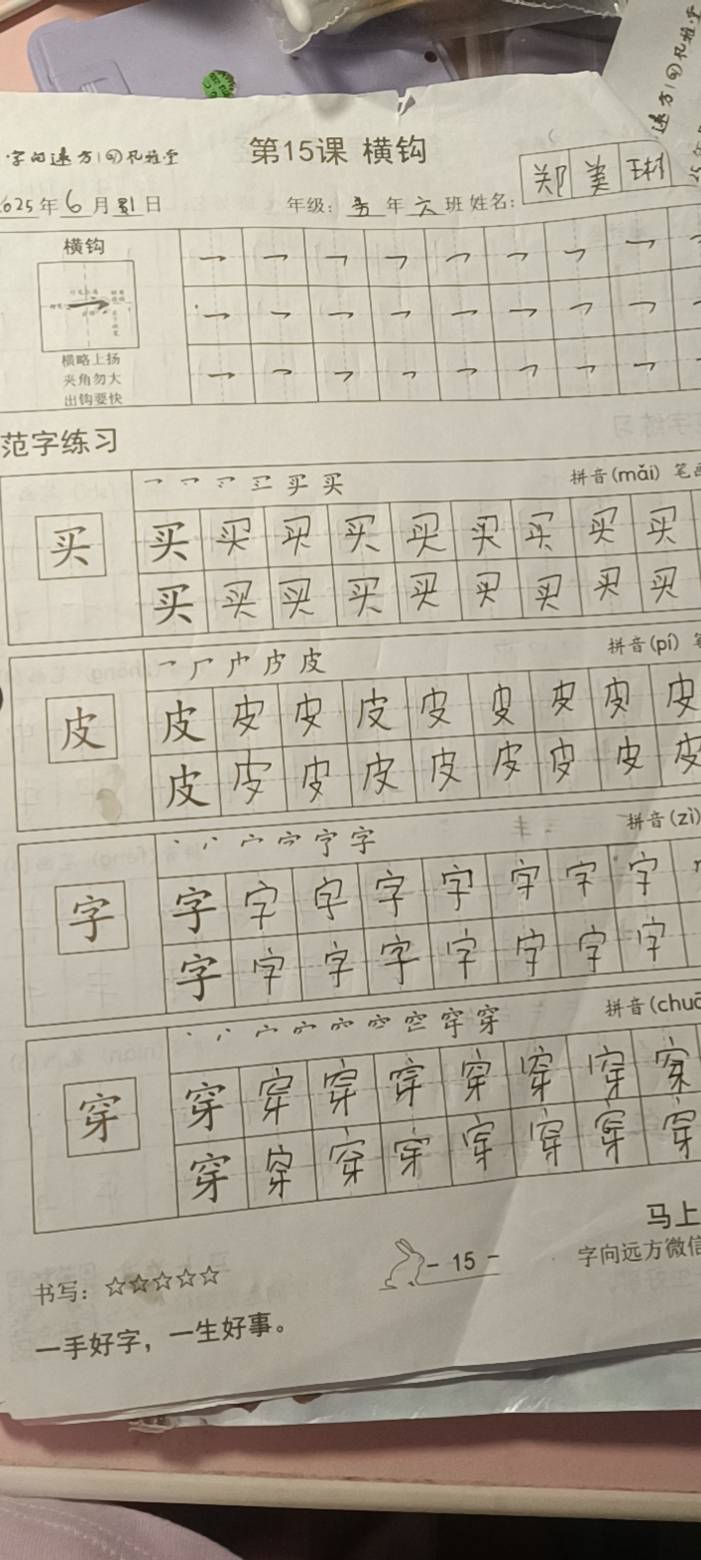 字向远方|回风雅堂
第15课 横钩
郑美琳
2025年6月 日
年级: 年六班 姓名:
横钩
横略上扬
夹角勿大
出钩要快
范字练习
买 拼音(mǎi) 笔画
买 买 买 买 买 买 买 买 买
买 买 买 买 买 买 买 买 买
皮 拼音(pí) 笔
皮 皮 皮 皮 皮 皮 皮 皮 皮
皮 皮 皮 皮 皮 皮 皮 皮 皮
字 拼音(zì)
字 字 字 字 字 字 字 字
字 字 字 字 字 字 字 字
穿 拼音(chuā
穿 穿 穿 穿 穿 穿 穿 穿
穿 穿 穿 穿 穿 穿 穿 穿
马上
书写: ☆☆☆☆☆
- 15 -
字向远方微信
一手好字，一生好事。